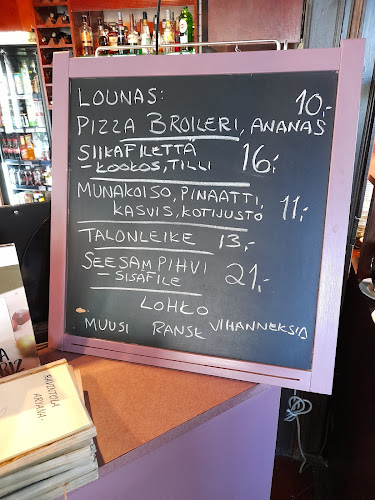 LOUNAS:
PIZZA BROILERI, ANANAS 10,-
SIIKAFILETTÄ
- KOOKOS, TILLI 16,-
MUNAKOISO, PINAATTI,
KASVIS, KOTIJUSTO 11,-
TALONLEIKE 13,-
SEESAMPIHVI
- SISÄFILE 21,-
LOHKO
MUUSI RANSK VIHANNEKSIA
RAVINTOLA
ARIANA